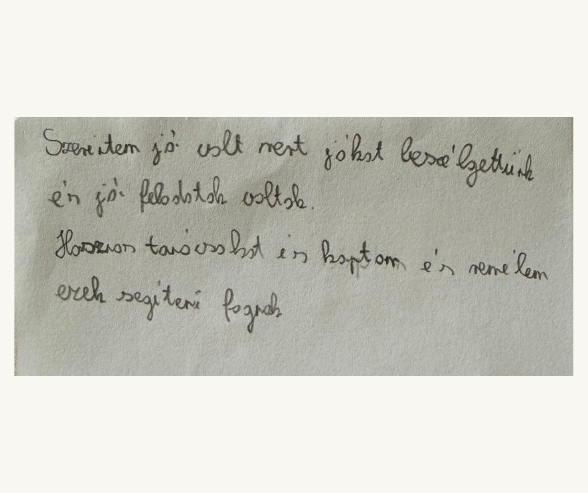 Szerintem jó volt mert jókat beszélgettünk
és jó feladatok voltak.
Hasznos tanácsokat is kaptam és remélem
ezek segíteni fognak